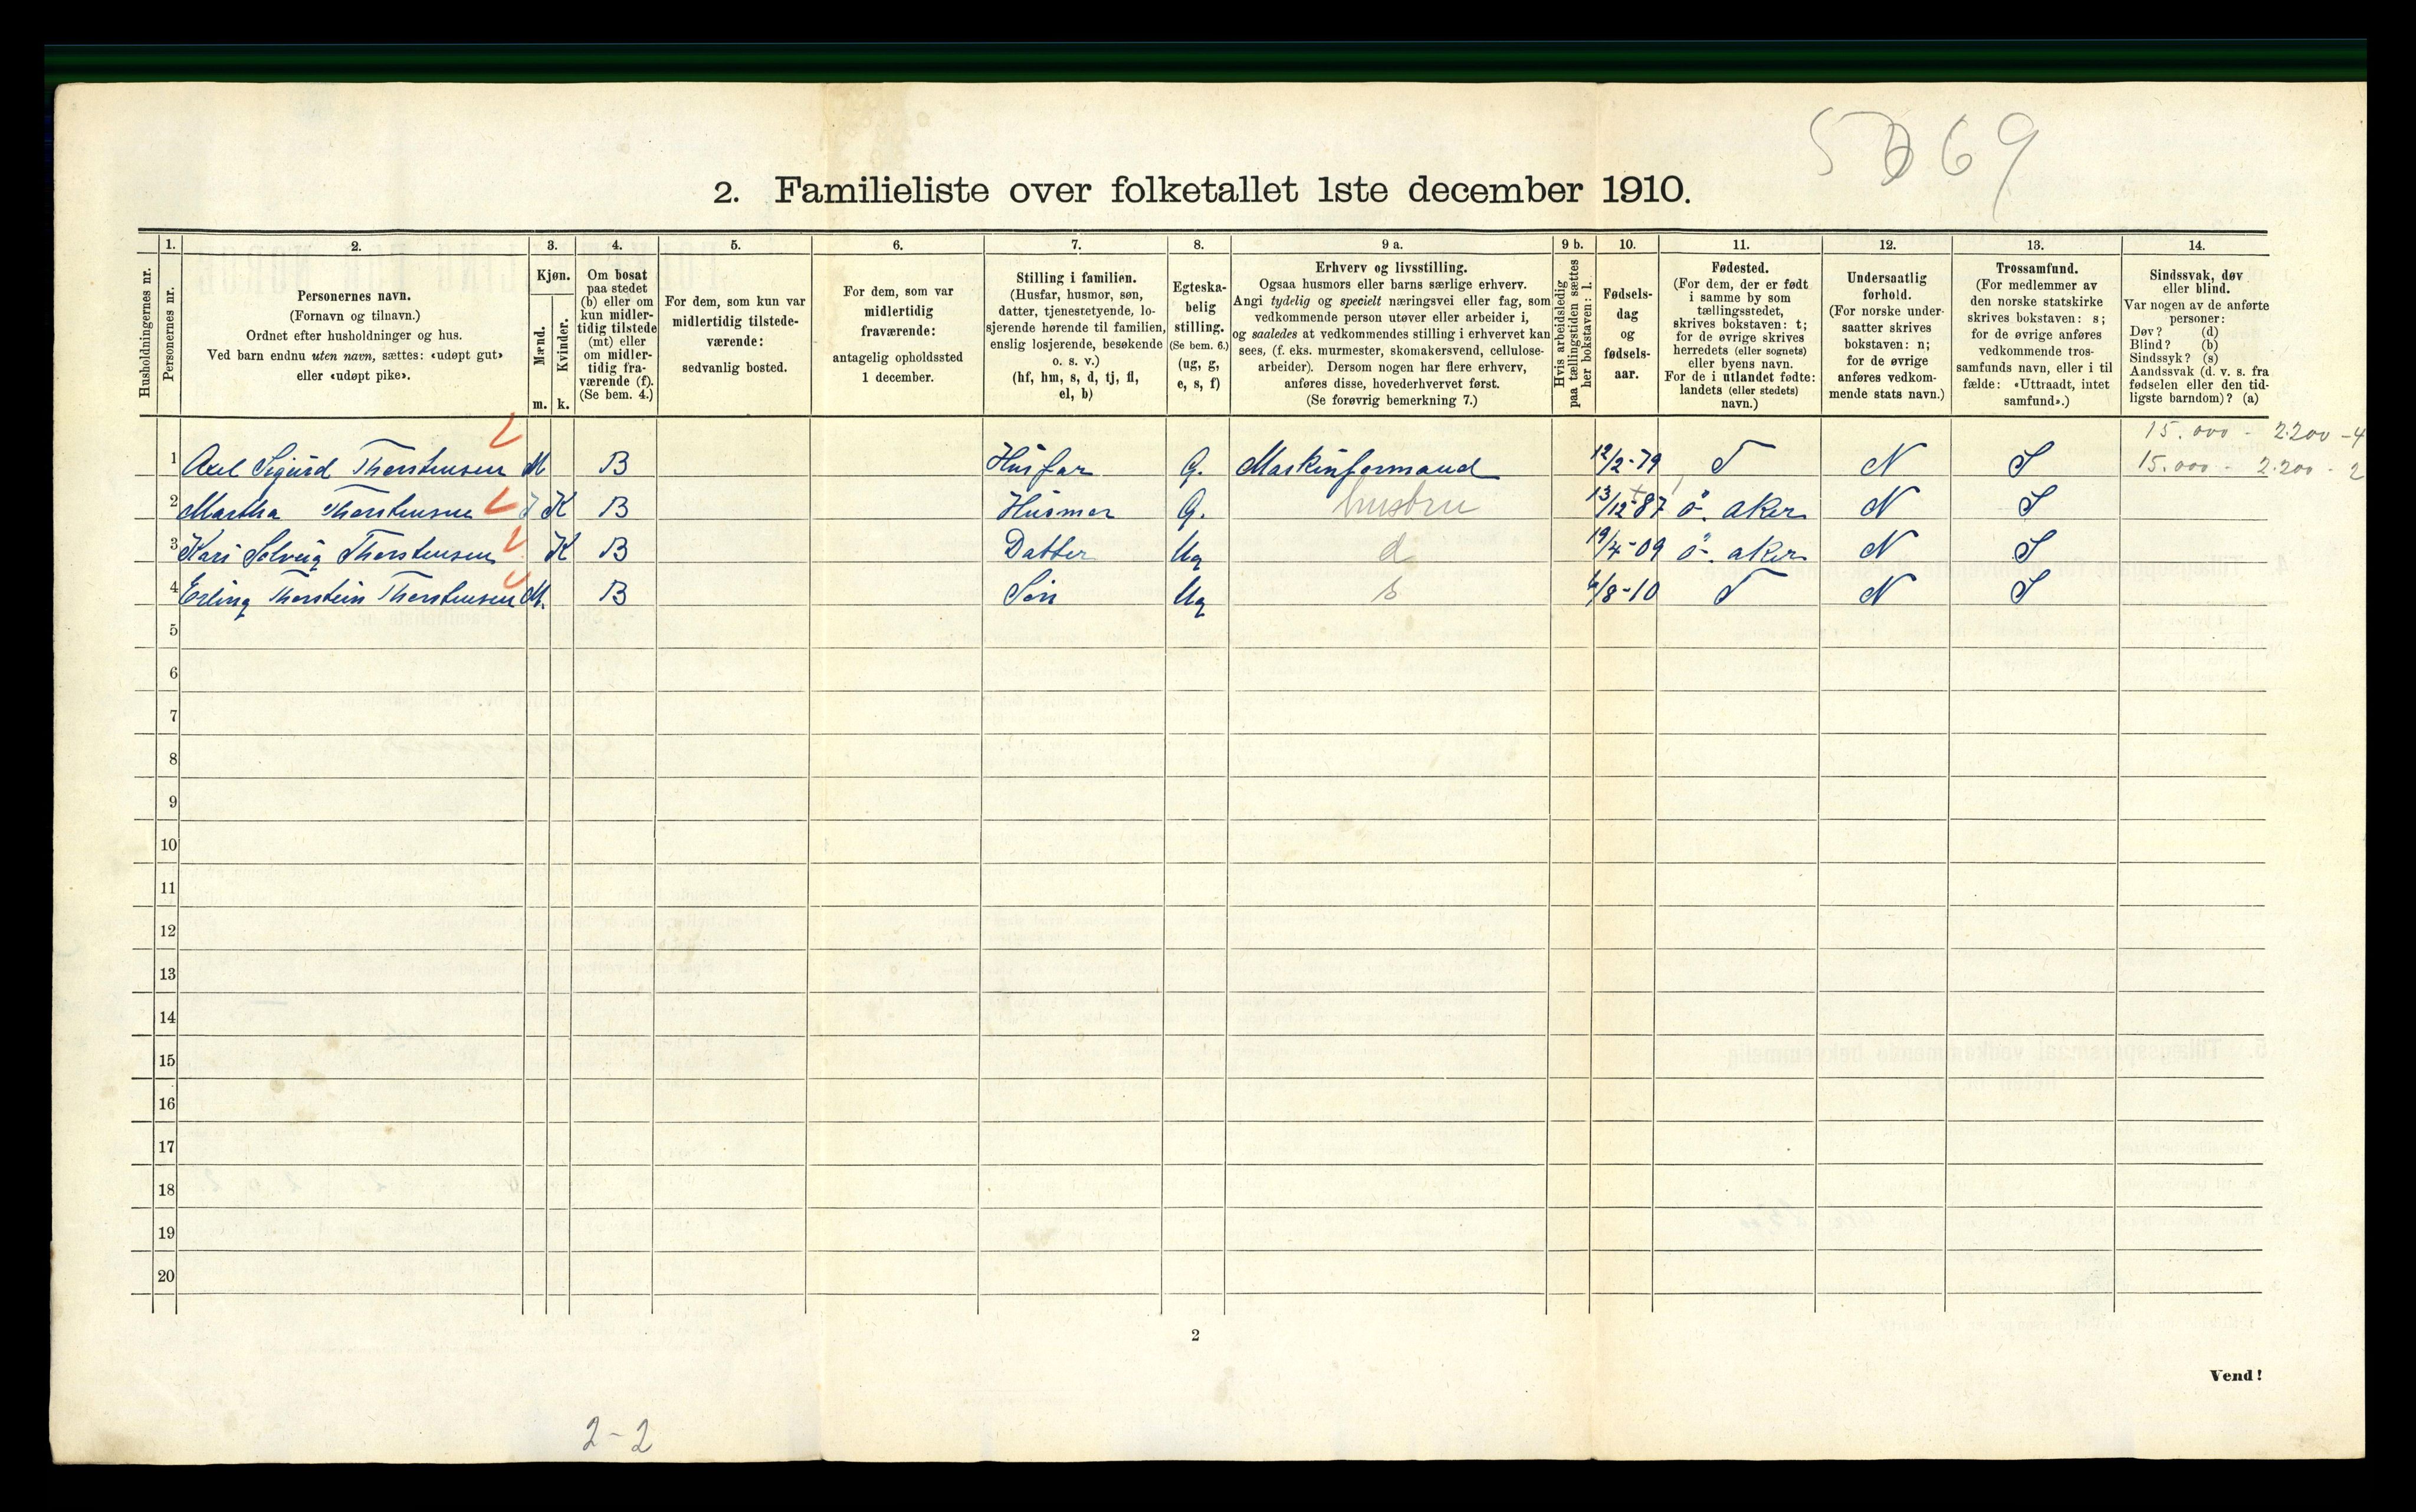 2. Familieliste over folketallet 1ste december 1910.
Husholdningernes nr.
1. Personernes nr.
2. Personernes navn.
(Fornavn og tilnavn.)
Ordnet efter husholdninger og hus.
Ved barn endnu uten navn, sættes: «udøpt gut»
eller «udøpt pike».
3. Kjøn.
Mænd. Kvinder.
m. k.
4. Om bosat
paa stedet
(b) eller om
kun midler-
tidig tilstede
(mt) eller
om midler-
tidig fra-
værende (f).
(Se bem. 4.)
5. For dem, som kun var
midlertidig tilstede-
værende:
sedvanlig bosted.
6. For dem, som var
midlertidig
fraværende:
antagelig opholdssted
1 december.
7. Stilling i familien.
(Husfar, husmor, søn,
datter, tjenestetyende, lo-
sjerende hørende til familien,
enslig losjerende, besøkende
o. s. v.)
(hf, hm, s, d, tj, fl,
el, b)
8. Egteska-
belig
stilling.
(Se bem. 6.)
(ug, g,
e, s, f)
9 a. Erhverv og livsstilling.
Ogsaa husmors eller barns særlige erhverv.
Angi tydelig og specielt næringsvei eller fag, som
vedkommende person utøver eller arbeider i,
og saaledes at vedkommendes stilling i erhvervet kan
sees, (f. eks. murmester, skomakersvend, cellulose-
arbeider). Dersom nogen har flere erhverv,
anføres disse, hovederhvervet først.
(Se forøvrig bemerkning 7.)
9 b. Hvis arbeidsledig
paa tællingstiden sættes
her bokstaven: l.
10. Fødsels-
dag
og
fødsels-
aar.
11. Fødested.
(For dem, der er født
i samme by som
tællingsstedet,
skrives bokstaven: t;
for de øvrige skrives
herredets (eller sognets)
eller byens navn.
For de i utlandet fødte:
landets (eller stedets)
navn.)
12. Undersaatlig
forhold.
(For norske under-
saatter skrives
bokstaven: n;
for de øvrige
anføres vedkom-
mende stats navn.)
13. Trossamfund.
(For medlemmer av
den norske statskirke
skrives bokstaven: s;
for de øvrige anføres
vedkommende tros-
samfunds navn, eller i til
fælde: «Uttraadt, intet
samfund».)
14. Sindssvak, døv
eller blind.
Var nogen av de anførte
personer:
Døv? (d)
Blind? (b)
Sindssyk? (s)
Aandssvak (d. v. s. fra
fødselen eller den tid-
ligste barndom)? (a)
15.000 - 2.200 - 4
1 Axel Sigurd Thorstensen M B Husfar G. Maskinformand 12/2-79 T N S 15.000 - 2.200 - 2
2 Martha Thorstensen K B Husmor G. husbru 13/12-87 ö. aker N S
3 Kari Solveig Thorstensen K B Datter Ug d 19/4-09 ö. aker N S
4 Erling Thorstein Thorstensen M. B Sön Ug s 6/8-10 T N S
5
6
7
8
9
10
11
12
13
14
15
16
17
18
19
20
2
Vend!
2-2